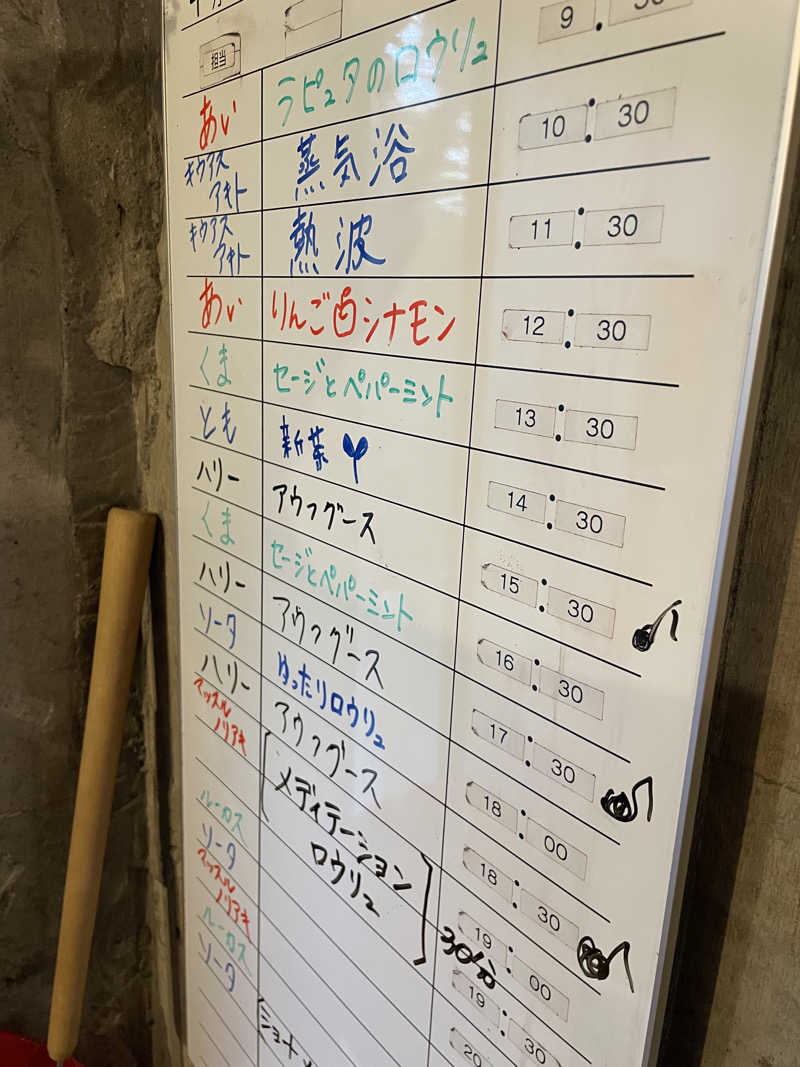 担当
あい ラピュタのロウリュ 9:30
キウアス アキト 蒸気浴 10:30
キウアス アキト 熱波 11:30
あい りんご白シナモン 12:30
くま セージとペパーミント 13:30
とも 新茶 14:30
ハリー アウフグース 15:30
くま セージとペパーミント 16:30
ハリー アウフグース 17:30
ソータ ゆったりロウリュ 18:00
ハリー アウフグース 18:30
マッスル ノリアキ メディテーション 19:00
ロウリュ 30分
ルーカス 19:30
ソータ 20
マッスル ノリアキ
ルーカス
ソータ